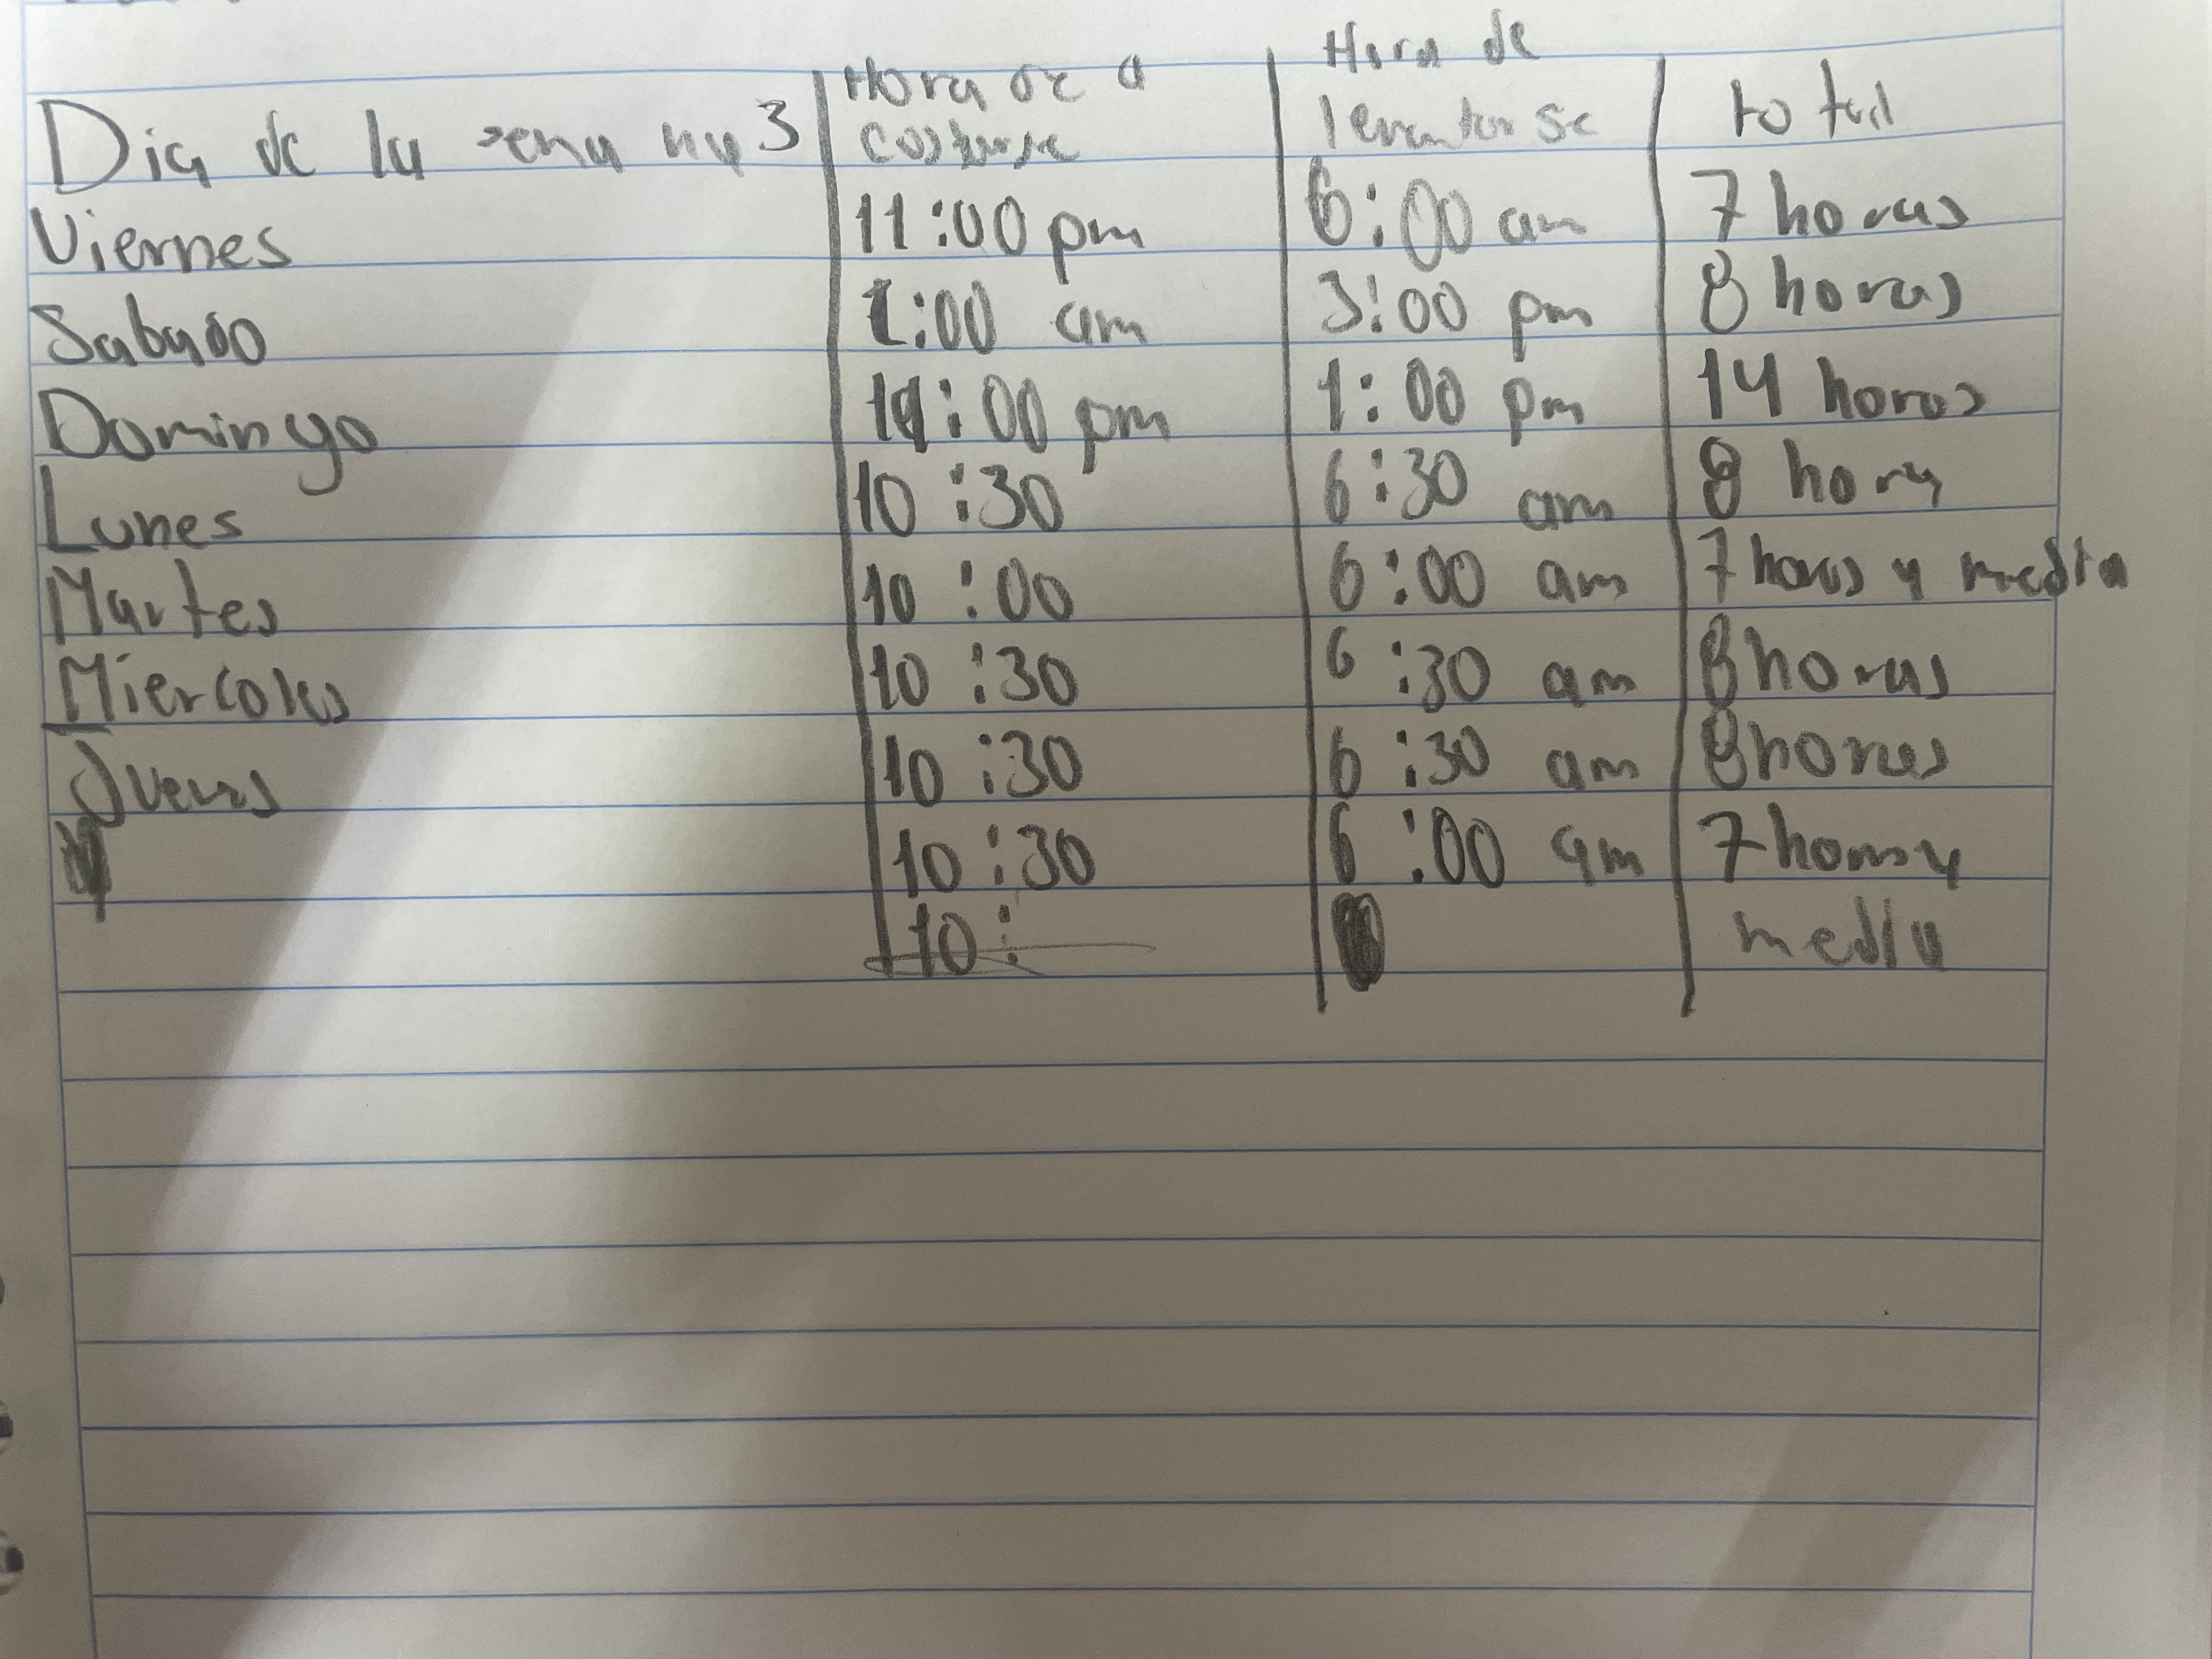 Hora de
Dia de la sema na 3 Hora de a total
costarse levantarse
Viernes 11:00 pm 6:00 am 7 horas
Sabado 1:00 am 3:00 pm 8 horas
Domingo 11:00 pm 1:00 pm 14 horas
Lunes 10:30 6:30 am 8 hora
Martes 10:00 6:00 am 7 horas y media
Miercoles 10:30 6:30 am 8 horas
Jueves 10:30 6:30 am 8 horas
10:30 6:00 am 7 horas y
10: media